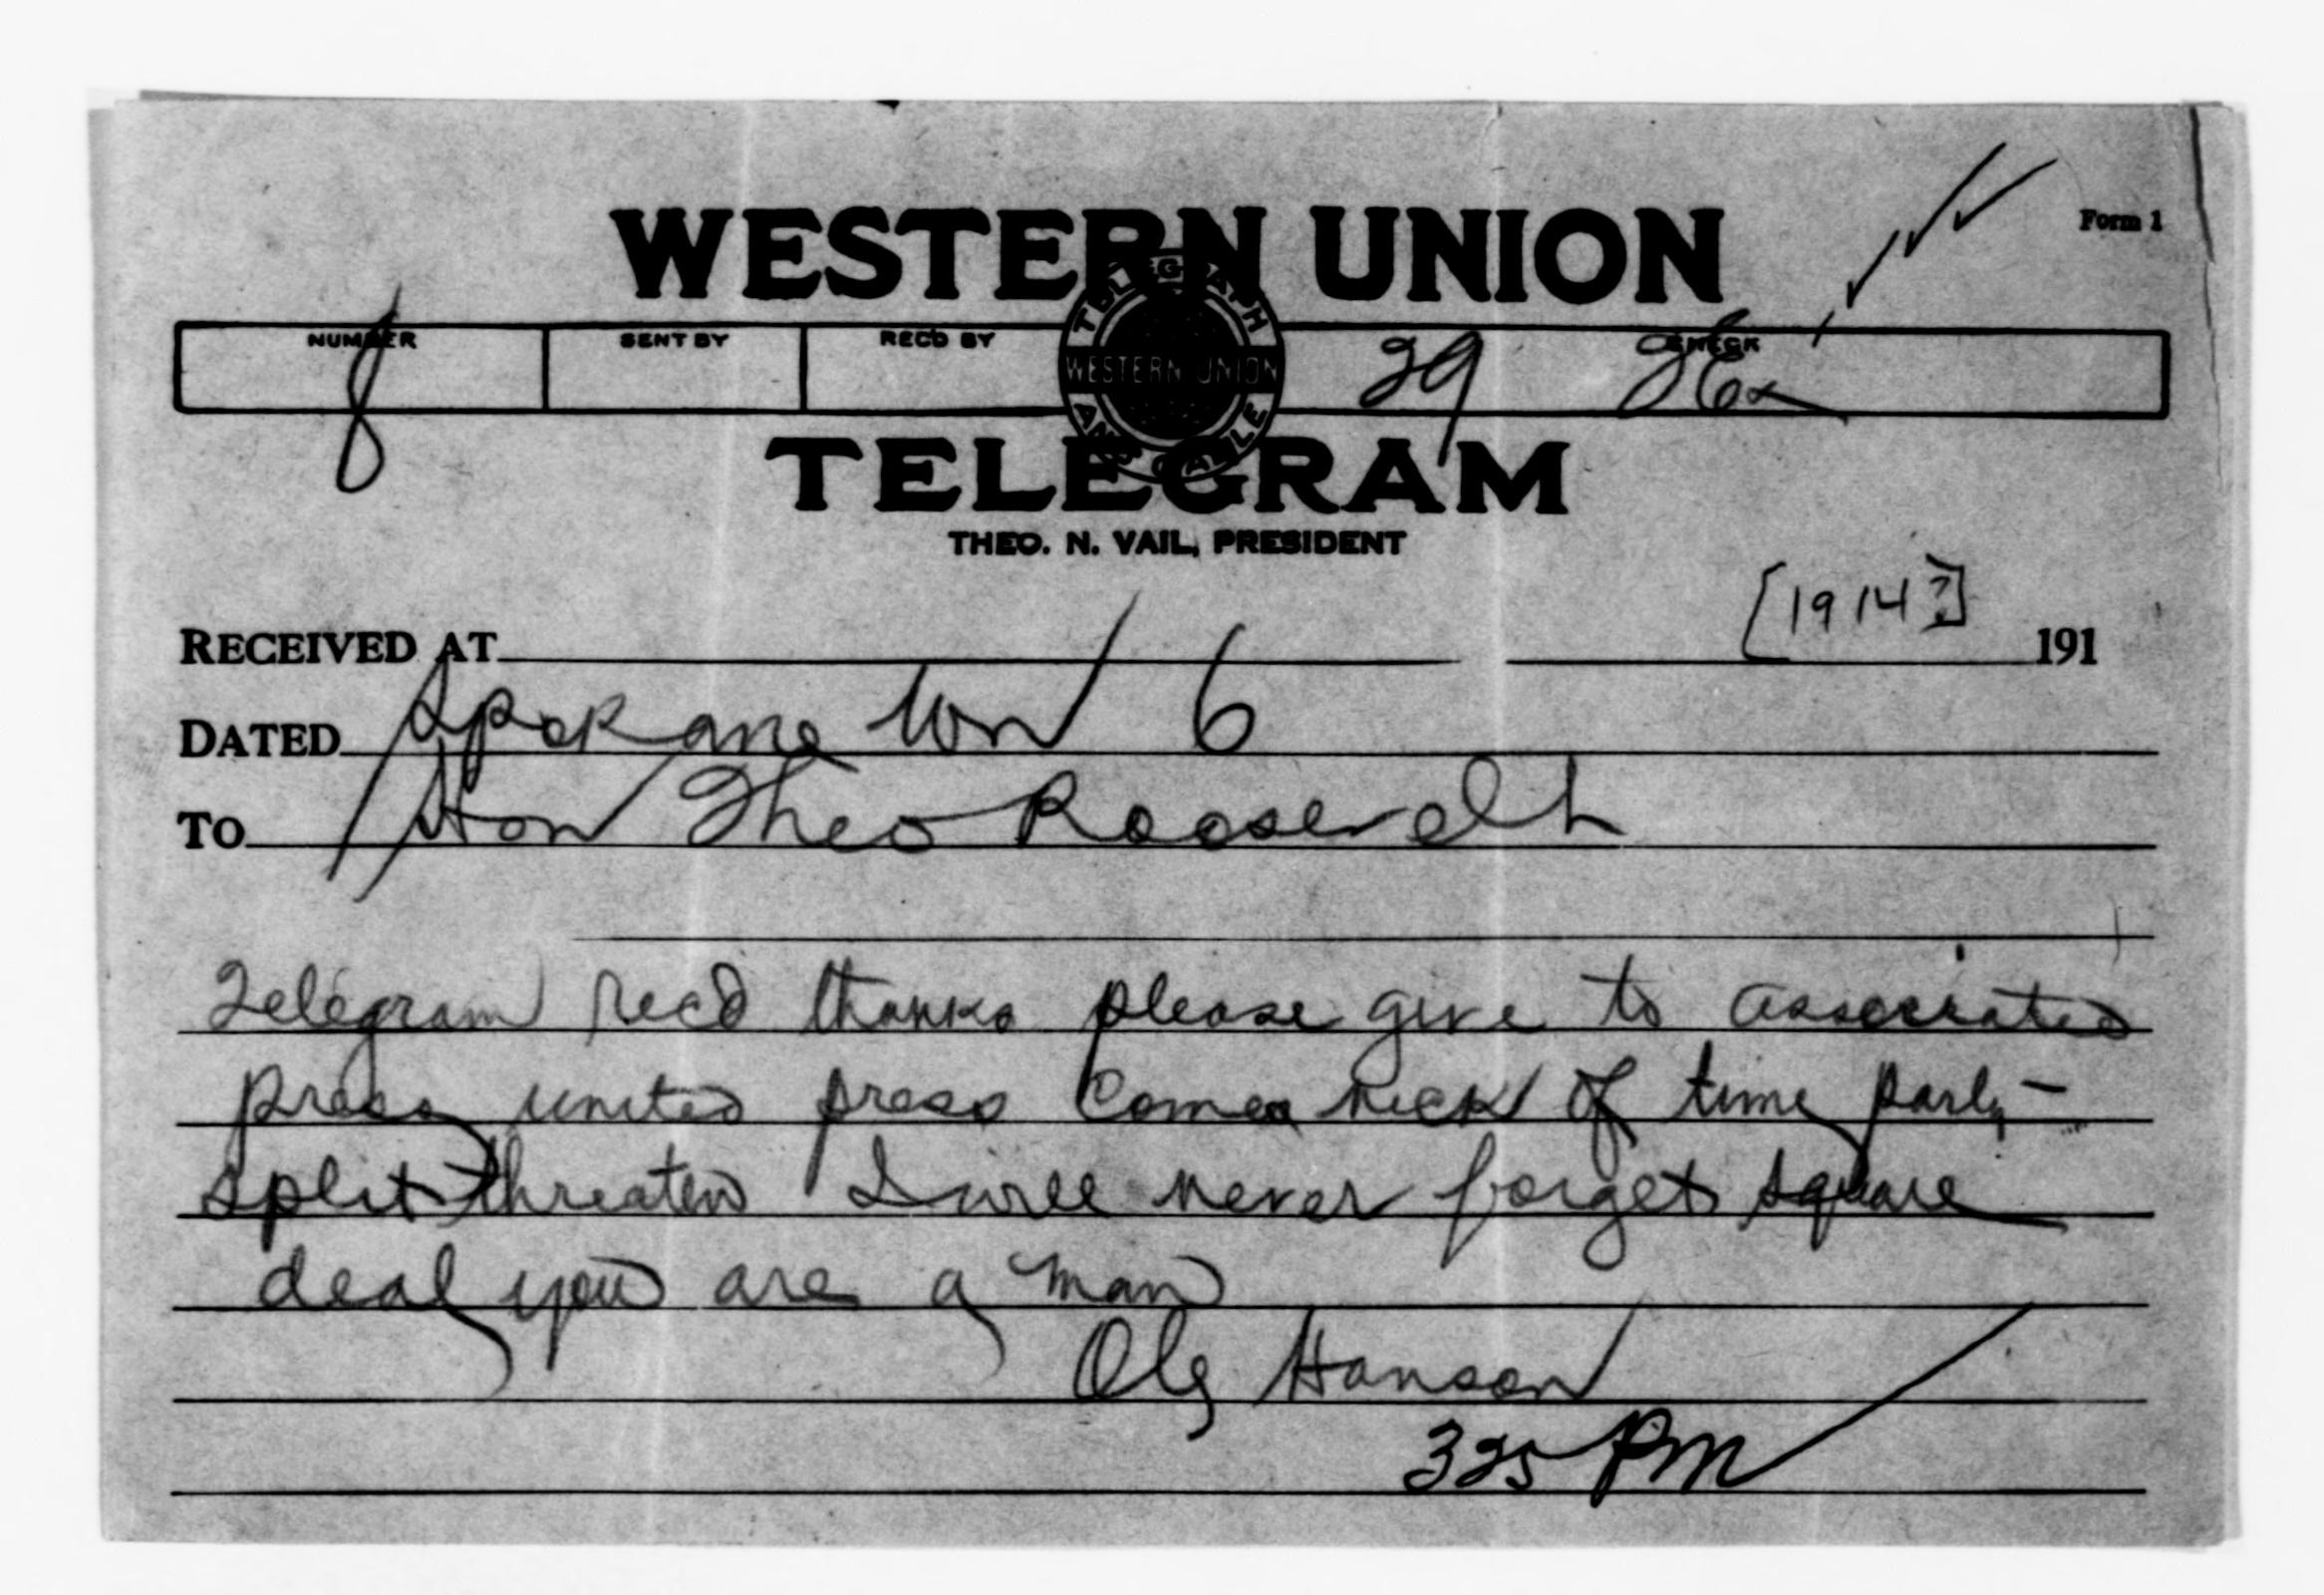 Form 1
WESTERN UNION
NUMBER SENT BY REC'D BY CHECK
8 29
TELEGRAPH WESTERN UNION AND CABLE
TELEGRAM
THEO. N. VAIL, PRESIDENT
[1914?]
RECEIVED AT 191
DATED Spokane Wn 6
TO Hon Theo Roosevelt
Telegram recd thanks please give to associated
press united press comes nick of time party
split threaten I will never forget square
deal you are a man
Ole Hanson
325 PM